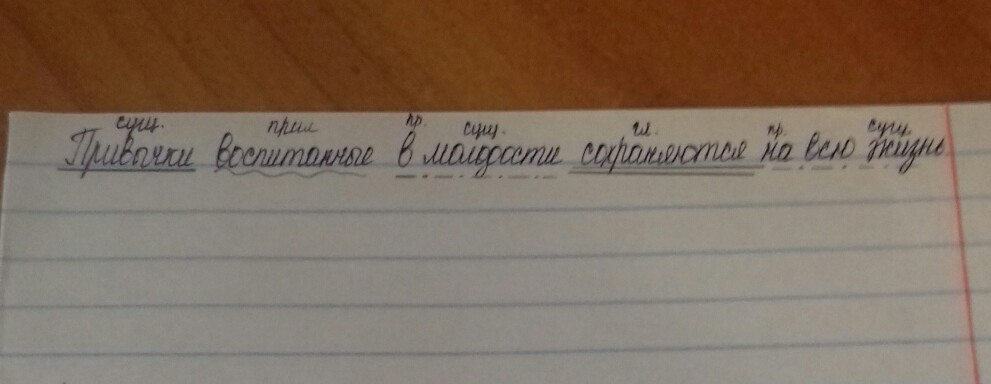 сущ. прил пр. сущ. гл. пр. сущ
Привычки воспитанные в молодости сохраняются на всю жизнь